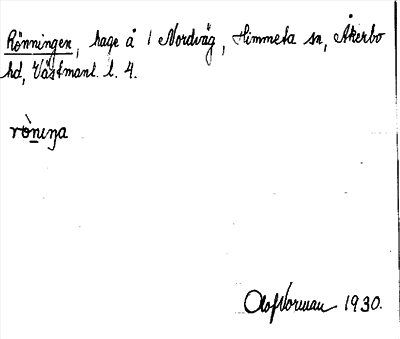 Rönningen, hage å 1 Nordväg, Himmeta sn, Åkerbo
hd, Västmanl. l. 4.
rò̱nıŋa
Olof Norman 1930.